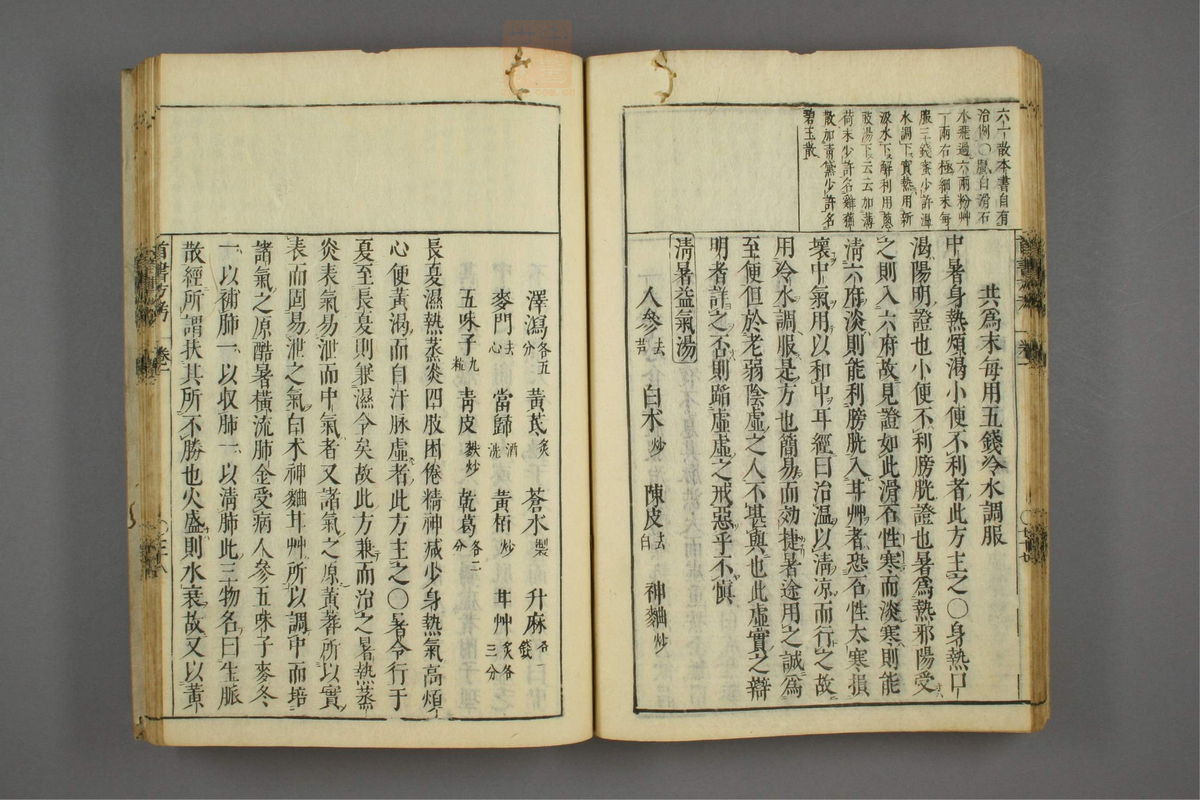 六一散本書自有
治例〇一膩白滑石
水飛過六兩粉艸
一兩右極細末每
服三錢蜜少許溫
水調下實熱用新
汲水下解利用葱
豉湯下云云加薄
荷末少許名雞蘇
散加青黛少許名
碧玉散
共為末每用五錢冷水調服
中暑身熱煩渴小便不利者此方主之〇身熱口
渴陽明證也小便不利膀胱證也暑為熱邪陽受
之則入六府故見證如此滑石性寒而淡寒則能
清六府淡則能利膀胱入甘艸者恐石性太寒損
壞中氣用以和中耳經曰治温以清凉而行之故
用冷水調服是方也簡易而効捷暑途用之誠為
至便但於老弱陰虛之人不堪與也此虛實之辯
明者詳之否則蹈虛虛之戒惡乎不愼
清暑益氣湯
人參去蘆 白朮炒 陳皮去白 神麯炒
澤瀉各五分 黃芪炙 蒼朮製 升麻各一錢
麥門去心 當歸酒洗 黃栢炒 甘艸炙各三分
五味子九粒 青皮麩炒 乾葛各二分
長夏濕熱蒸炎四肢困倦精神減少身熱氣高煩
心便黃渴而自汗脉虛者此方主之〇暑令行于
夏至長夏則兼濕令矣故此方兼而治之暑熱蒸
炎表氣易泄而中氣者又諸氣之原黃蓍所以實
表而固易泄之氣白朮神麯甘艸所以調中而培
諸氣之原酷暑橫流肺金受病人參五味子麥冬
一以補肺一以收肺一以清肺此三物名曰生脈
散經所謂扶其所不勝也火盛則水衰故又以黃
首書方考 卷一 〇三六